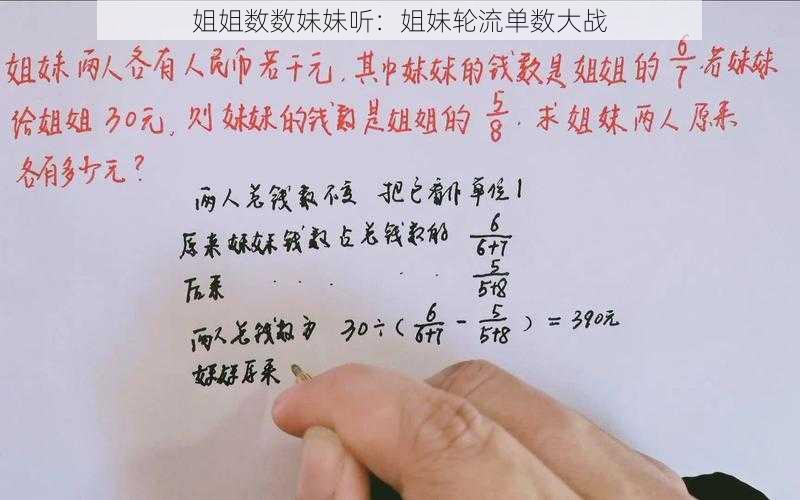 姐姐数数妹妹听：姐妹轮流单数大战
姐妹两人各有人民币若干元，其中妹妹的钱数是姐姐的6/7.若妹妹
给姐姐30元，则妹妹的钱数是姐姐的5/8.求姐妹两人原来
各有多少元？
两人总钱数不变 把它看作单位1
原来妹妹钱数占总钱数的 6/(6+7)
后来 · · · · · 5/(5+8)
两人总钱数为 30÷(6/(6+7)-5/(5+8))=390元
妹妹原来